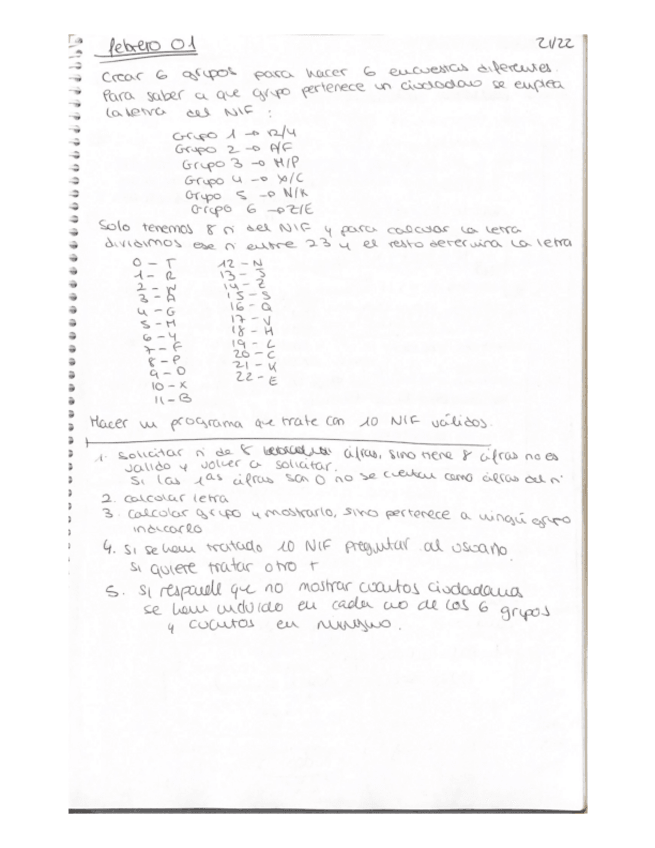 febrero 01
21/22
Crear 6 grupos para hacer 6 encuestas diferentes.
Para saber a que grupo pertenece un ciudadano se emplea
la letra del NIF :
Grupo 1 → R/Y
Grupo 2 → A/F
Grupo 3 → M/P
Grupo 4 → X/C
Grupo 5 → N/K
Grupo 6 → Z/E
Solo tenemos 8 nº del NIF y para calcular la letra
dividimos ese nº entre 23 y el resto determina la letra
0 - T
1 - R
2 - W
3 - A
4 - G
5 - M
6 - Y
7 - F
8 - P
9 - D
10 - X
11 - B
12 - N
13 - J
14 - Z
15 - S
16 - Q
17 - V
18 - H
19 - L
20 - C
21 - K
22 - E
Hacer un programa que trate con 10 NIF válidos.
1. Solicitar nº de 8 cifras, sino tiene 8 cifras no es
valido y volver a solicitar.
Si las 1as cifras son 0 no se cuentan como cifras del nº
2. calcular letra
3. calcular grupo y mostrarlo, sino pertenece a ningú grupo
indicarlo
4. Si se han tratado 10 NIF preguntar al usuario
si quiere tratar otro +
5. Si responde que no mostrar cuantos ciudadanos
se han incluido en cada uno de los 6 grupos
y cuantos en ninguno.